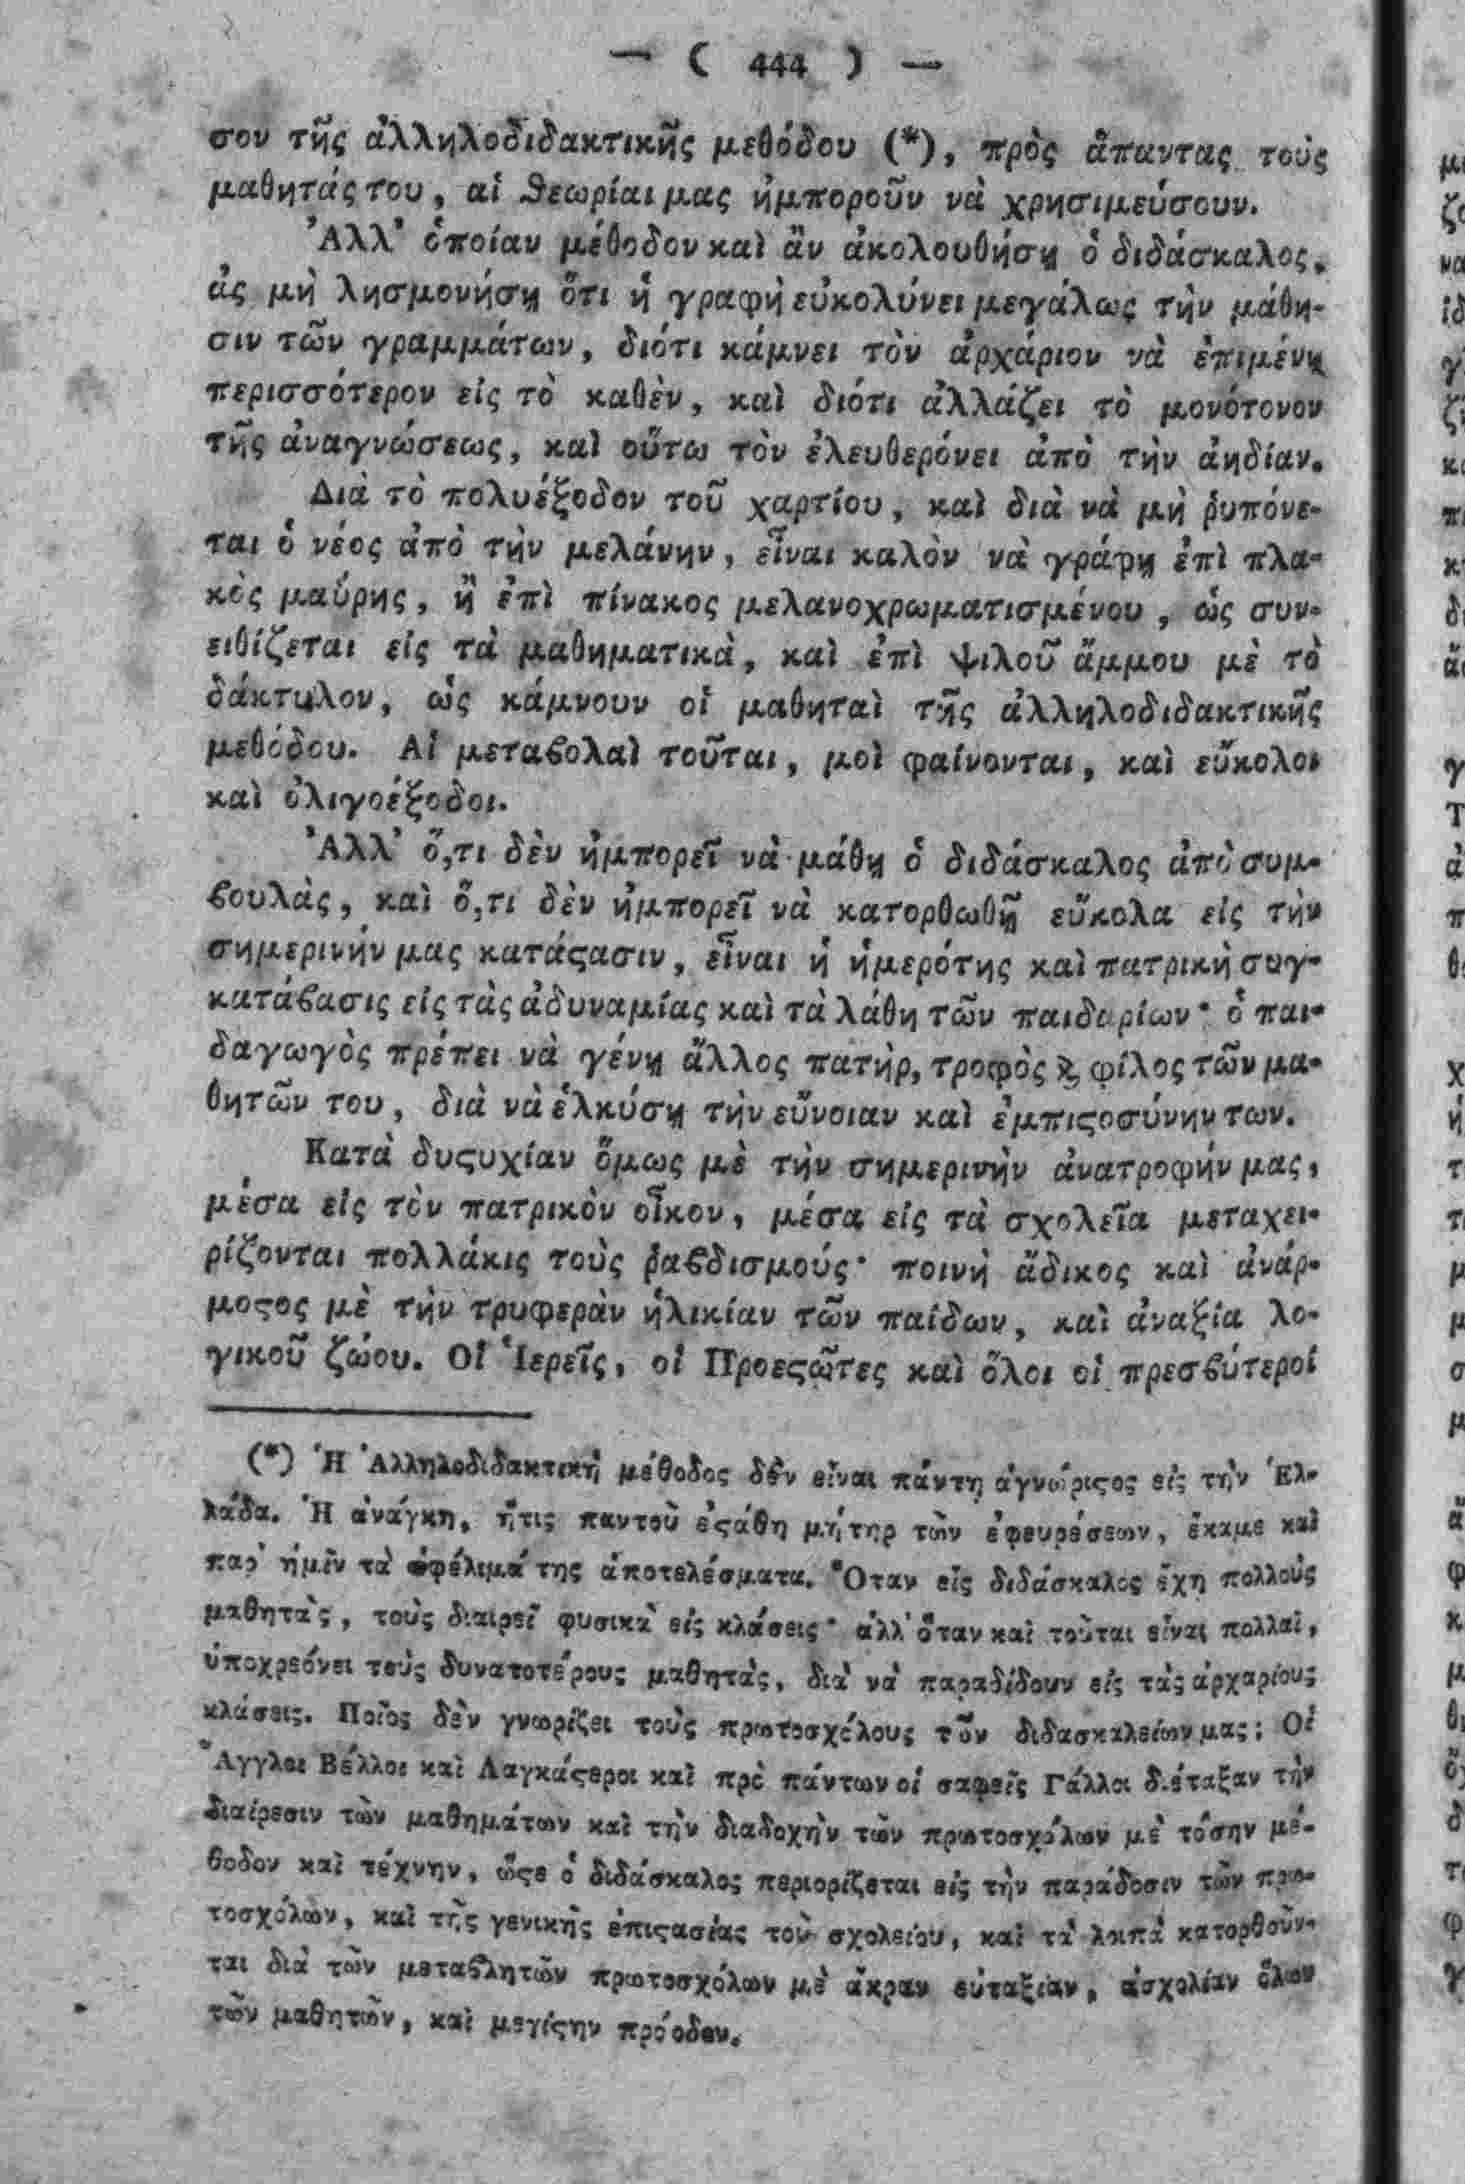 — ( 444 ) —
σον τῆς ἀλληλοδιδακτικῆς μεθόδου (*), πρὸς ἅπαντας τοὺς
μαθητάς του, αἱ ϑεωρίαι μας ἠμποροῦν νὰ χρησιμεύσουν.
Ἀλλ' ὁποίαν μέθοδον καὶ ἂν ἀκολουθήσῃ ὁ διδάσκαλος,
ἀς μὴ λησμονήσῃ ὅτι ἡ γραφὴ εὐκολύνει μεγάλως τὴν μάθη-
σιν τῶν γραμμάτων, διότι κάμνει τὸν ἀρχάριον νὰ ἐπιμένῃ
περισσότερον εἰς τὸ καθὲν, καὶ διότι ἀλλάζει τὸ μονότονον
τῆς ἀναγνώσεως, καὶ οὕτω τὸν ἐλευθερόνει ἀπὸ τὴν ἀηδίαν.
Διὰ τὸ πολυέξοδον τοῦ χαρτίου, καὶ διὰ νὰ μὴ ῥυπόνε-
ται ὁ νέος ἀπὸ τὴν μελάνην, εἶναι καλὸν νὰ γράφῃ ἐπὶ πλα-
κὸς μαύρης, ἢ ἐπὶ πίνακος μελανοχρωματισμένου, ὡς συν-
ειθίζεται εἰς τὰ μαθηματικὰ, καὶ ἐπὶ ψιλοῦ ἄμμου μὲ τὸ
δάκτυλον, ὡς κάμνουν οἱ μαθηταὶ τῆς ἀλληλοδιδακτικῆς
μεθόδου. Αἱ μεταϐολαὶ τοῦται, μοὶ φαίνονται, καὶ εὔκολοι
καὶ ὀλιγοέξοδοι.
Ἀλλ' ὅ,τι δὲν ἠμπορεῖ νὰ μάθῃ ὁ διδάσκαλος ἀπὸ συμ-
ϐουλὰς, καὶ ὅ,τι δὲν ἠμπορεῖ νὰ κατορθωθῇ εὔκολα εἰς τὴν
σημερινήν μας κατάϛασιν, εἶναι ἡ ἡμερότης καὶ πατρικὴ συγ-
κατάϐασις εἰς τὰς ἀδυναμίας καὶ τὰ λάθη τῶν παιδαρίων· ὁ παι-
δαγωγὸς πρέπει νὰ γένῃ ἄλλος πατὴρ, τροφὸς ϗ φίλος τῶν μα-
θητῶν του, διὰ νὰ ἑλκύσῃ τὴν εὔνοιαν καὶ ἐμπιϛοσύνην των.
Κατὰ δυϛυχίαν ὅμως μὲ τὴν σημερινὴν ἀνατροφήν μας,
μέσα εἰς τὸν πατρικὸν οἶκον, μέσα εἰς τὰ σχολεῖα μεταχει-
ρίζονται πολλάκις τοὺς ῥαϐδισμούς· ποινὴ ἄδικος καὶ ἀνάρ-
μοϛος μὲ τὴν τρυφερὰν ἡλικίαν τῶν παίδων, καὶ ἀναξία λο-
γικοῦ ζώου. Οἱ Ἱερεῖς, οἱ Προεϛῶτες καὶ ὅλοι οἱ πρεσϐύτεροί
(*) Ἡ Ἀλληλοδιδακτικὴ μέθοδος δὲν εἶναι πάντη ἀγνώριϛος εἰς τὴν Ἑλ-
λάδα. Ἡ ἀνάγκη, ἥτις παντοῦ ἐϛάθη μήτηρ τῶν ἐφευρέσεων, ἔκαμε καὶ
παρ' ἡμῖν τὰ ὠφέλιμά της ἀποτελέσματα. Ὅταν εἷς διδάσκαλος ἔχῃ πολλοὺς
μαθητὰς, τοὺς διαιρεῖ φυσικὰ εἰς κλάσεις· ἀλλ' ὅταν καὶ τοῦται εἶναι πολλαὶ,
ὑποχρεόνει τοὺς δυνατοτέρους μαθητὰς, διὰ νὰ παραδίδουν εἰς τὰς ἀρχαρίους
κλάσεις. Ποῖος δὲν γνωρίζει τοὺς πρωτοσχόλους τῶν διδασκαλείων μας; Οἱ
Ἄγγλοι Βέλλοι καὶ Λαγκάϛεροι καὶ πρὸ πάντων οἱ σαφεῖς Γάλλοι διέταξαν τὴν
διαίρεσιν τῶν μαθημάτων καὶ τὴν διαδοχὴν τῶν πρωτοσχόλων μὲ τόσην μέ-
θοδον καὶ τέχνην, ὥϛε ὁ διδάσκαλος περιορίζεται εἰς τὴν παράδοσιν τῶν πρω-
τοσχόλων, καὶ τῆς γενικῆς ἐπιϛασίας τοῦ σχολείου, καὶ τὰ λοιπὰ κατορθοῦν-
ται διὰ τῶν μεταϐλητῶν πρωτοσχόλων μὲ ἄκραν εὐταξίαν, ἀσχολίαν ὅλων
τῶν μαθητῶν, καὶ μεγίϛην πρόοδον.